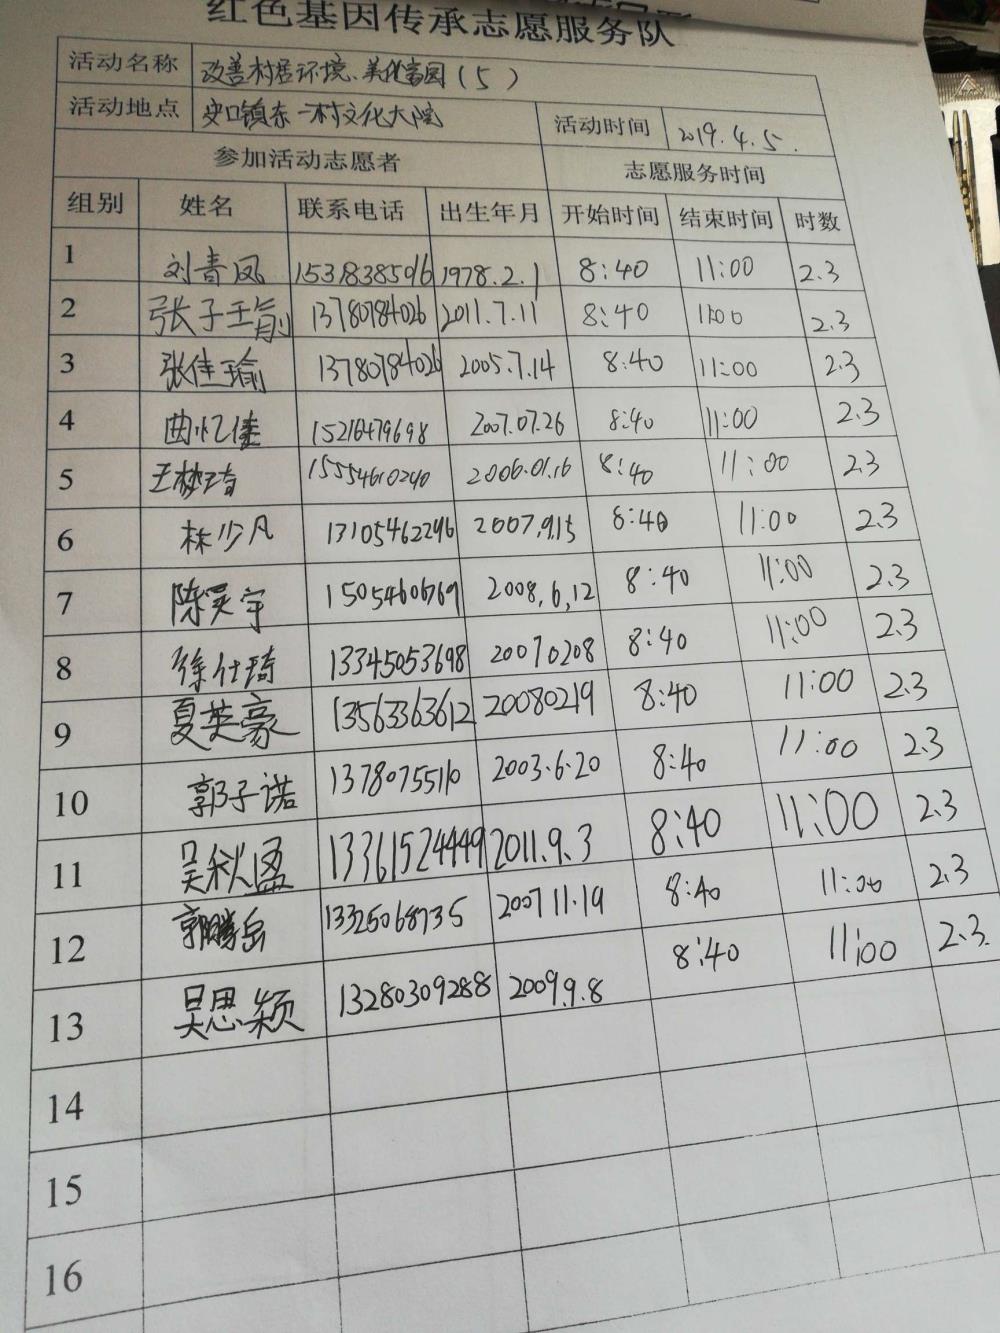 红色基因传承志愿服务队
活动名称 改善村居环境、美化家园(5)
活动地点 史口镇东一村文化大院 活动时间 2019.4.5.
参加活动志愿者 志愿服务时间
组别 姓名 联系电话 出生年月 开始时间 结束时间 时数
1 刘青凤 1978.2.1 8:40 11:00 2.3
2 张子王俞 13780784026 2011.7.11 8:40 11:00 2.3
3 张佳瑜 13780784026 2005.7.14 8:40 11:00 2.3
4 曲忆佳 15216479698 2007.07.26 8:40 11:00 2.3
5 王梦琦 15554610240 2006.01.16 8:40 11:00 2.3
6 林少凡 13105462296 2007.9.15 8:40 11:00 2.3
7 陈昊宇 15054606769 2008.6.12 8:40 11:00 2.3
8 徐仕琦 13345053698 20070208 8:40 11:00 2.3
9 夏英豪 13563363612 20080219 8:40 11:00 2.3
10 郭子诺 13780755110 2003.6.20 8:40 11:00 2.3
11 吴秋盈 13361524449 2011.9.3 8:40 11:00 2.3
12 郭腾岳 13325068735 2007 11.19 8:40 11:00 2.3
13 吴思颖 13280309288 2009.9.8 8:40 11:00 2.3.
14
15
16